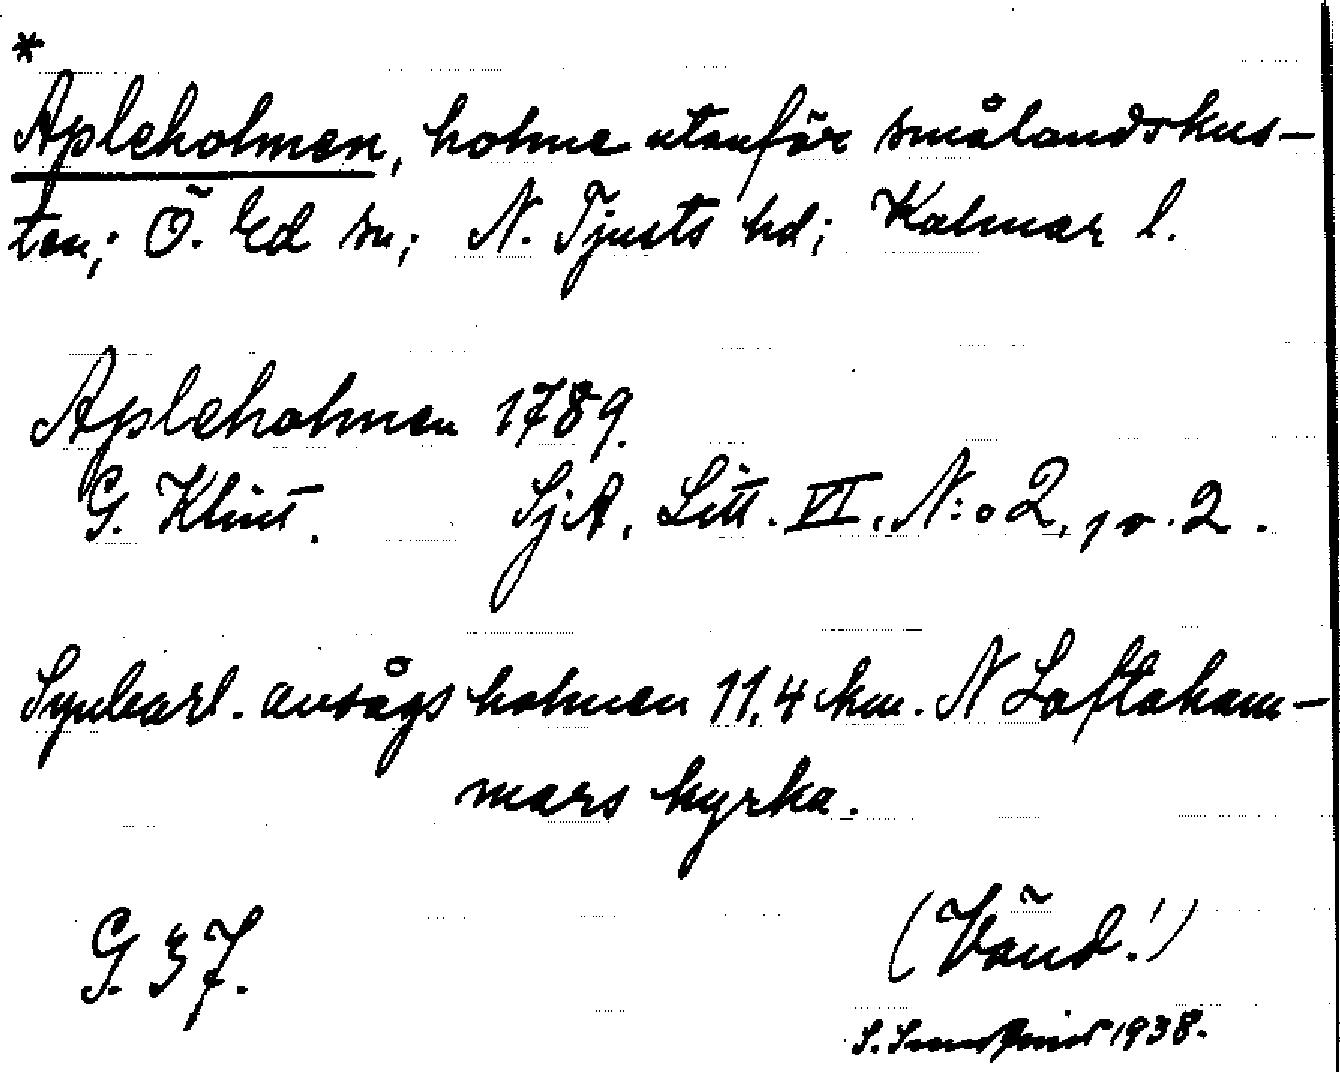 *
Apleholmen, holme utanför smålandskus-
ten; Ö. Ed sn; N. Tjusts hd; Kalmar l.
Apleholmen 1789.
G. Klint. SjA, Litt. VI, N:o 2, pr. 2.
Synbarl. avsågs holmen 11,4 km. N Loftaham-
mars kyrka.
G. 37. (Vänd!)
S. 1938.